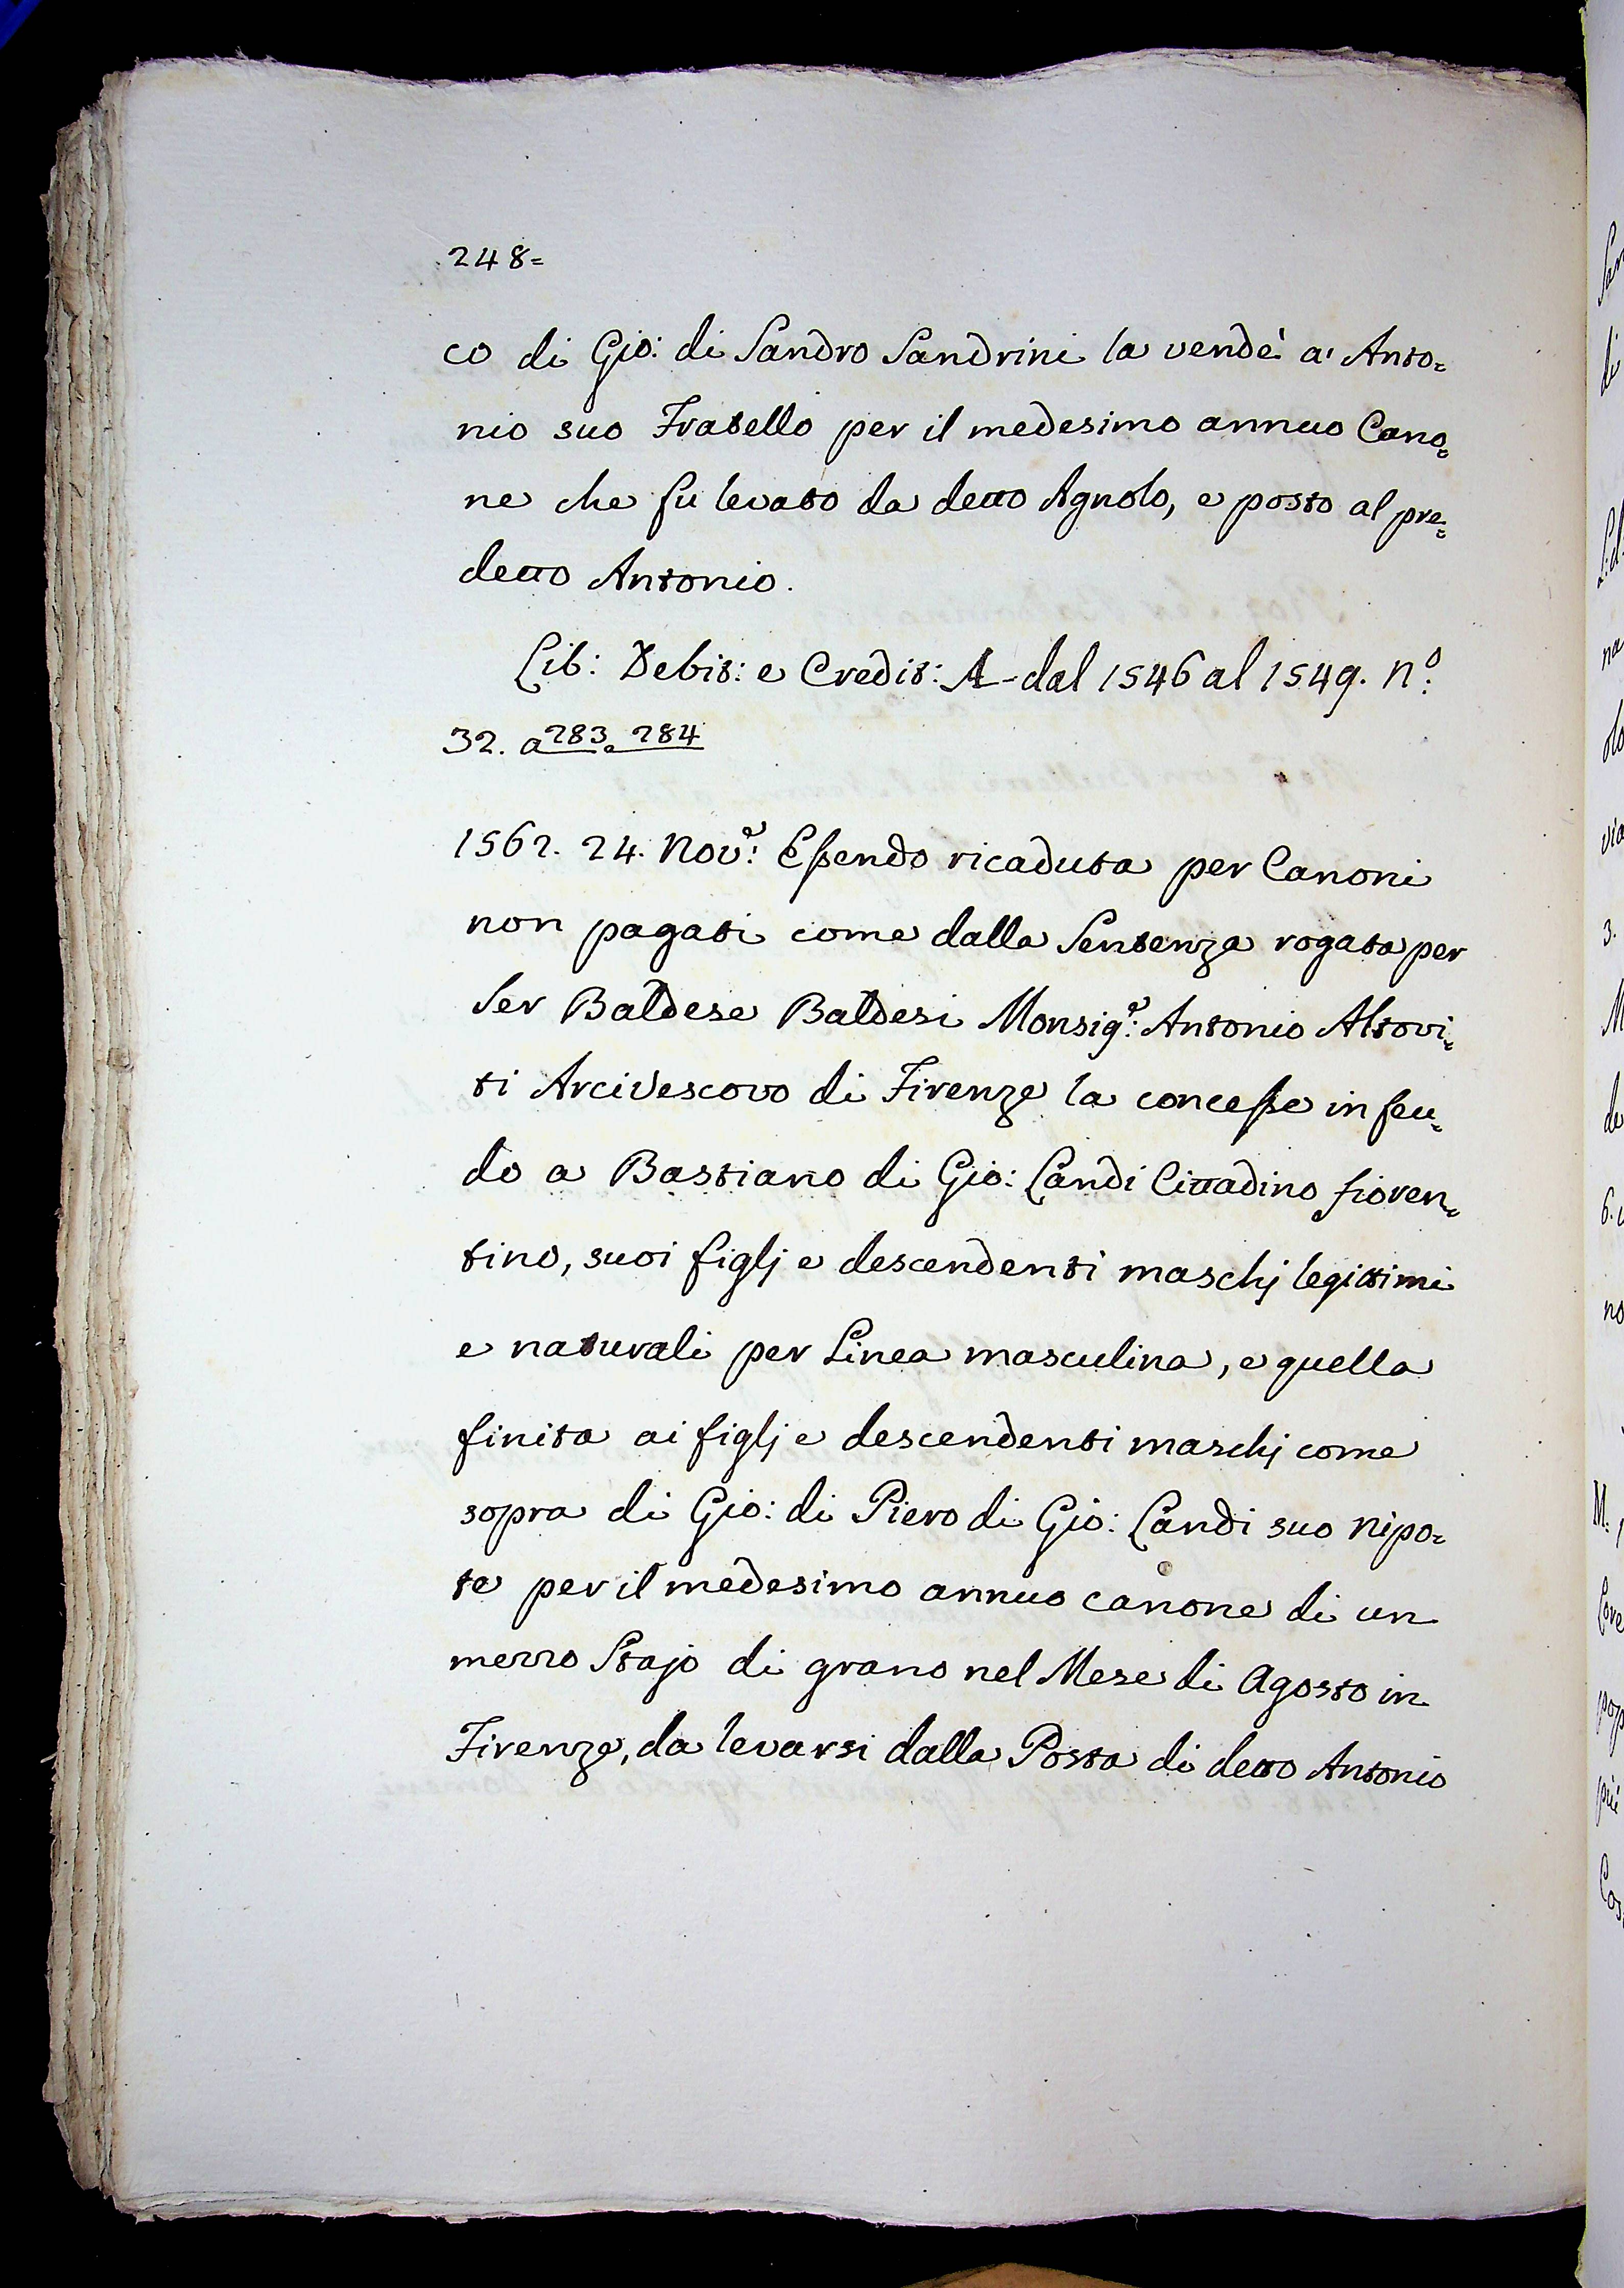 248=
co di Gio: di Sandro Sandrini la vendè a' Anto=
nio suo Fratello per il medesimo annuo Cano=
ne che fu levato da detto Agnolo, e posto al pre=
detto Antonio.
Lib: Debit: e Credit: A - dal 1546 al 1549. n.º
32. a 283 e 284
1562. 24. Nov.e: Essendo ricaduta per Canoni
non pagati come dalla Sentenza rogata per
Ser Baldese Baldesi Monsig.e: Antonio Altovi=
ti Arcivescovo di Firenze la concesse in feu=
do a Bastiano di Gio: Landi Cittadino fioren=
tino, suoi figlj e descendenti maschj legittimi
e naturali per Linea masculina, e quella
finita ai figlj e descendenti maschj come
sopra di Gio: di Piero di Gio: Landi suo Nipo=
te per il medesimo annuo canone di un
mezzo Stajo di grano nel Mese di Agosto in
Firenze, da levarsi dalla Posta di detto Antonio